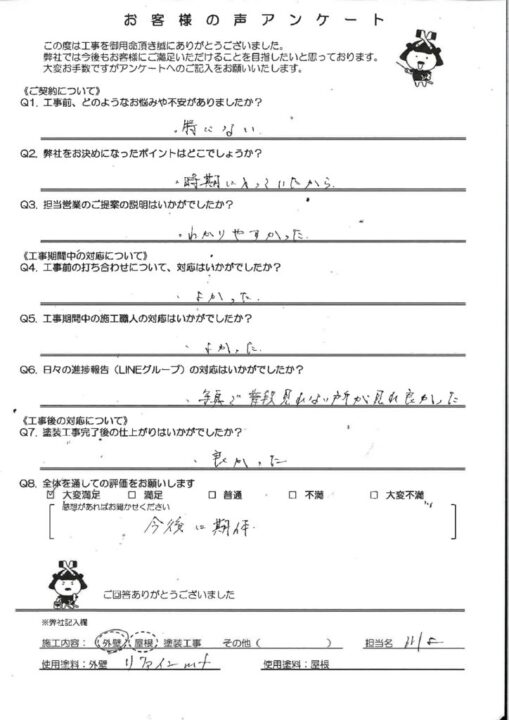 お客様の声アンケート
この度は工事を御用命頂き誠にありがとうございました。
弊社では今後もお客様にご満足いただけることを目指したいと思っております。
大変お手数ですがアンケートへのご記入をお願いいたします。
《ご契約について》
Q1. 工事前、どのようなお悩みや不安がありましたか？
・特にない
Q2. 弊社をお決めになったポイントはどこでしょうか？
・時期にあっていたから
Q3. 担当営業のご提案の説明はいかがでしたか？
・わかりやすかった
《工事期間中の対応について》
Q4. 工事前の打ち合わせについて、対応はいかがでしたか？
・よかった
Q5. 工事期間中の施工職人の対応はいかがでしたか？
・よかった
Q6. 日々の進捗報告（LINEグループ）の対応はいかがでしたか？
・写真で普段見れない所が見れ良かった
《工事後の対応について》
Q7. 塗装工事完了後の仕上がりはいかがでしたか？
・良かった
Q8. 全体を通しての評価をお願いします
☑ 大変満足 □ 満足 □ 普通 □ 不満 □ 大変不満
感想があればお聞かせください
今後に期待
ご回答ありがとうございました
※弊社記入欄
施工内容：外壁・屋根 塗装工事 その他（ ） 担当名
使用塗料：外壁 リファイン 使用塗料：屋根